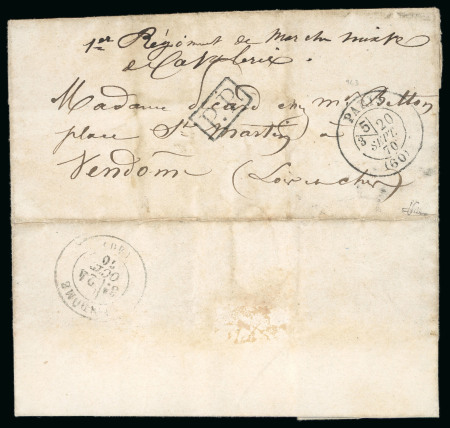 1er Régiment de Marche mixte
de Cavalerie.
Madame chez Mr Betton
P.P.
place St Martin à
Vendôme (Loir et cher)
PARIS
5
3
20
SEPT.
70
(60)
VENDOME
24
OCT
70